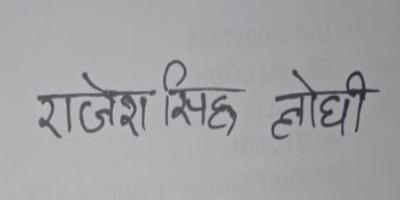 राजेश सिंह लोधी